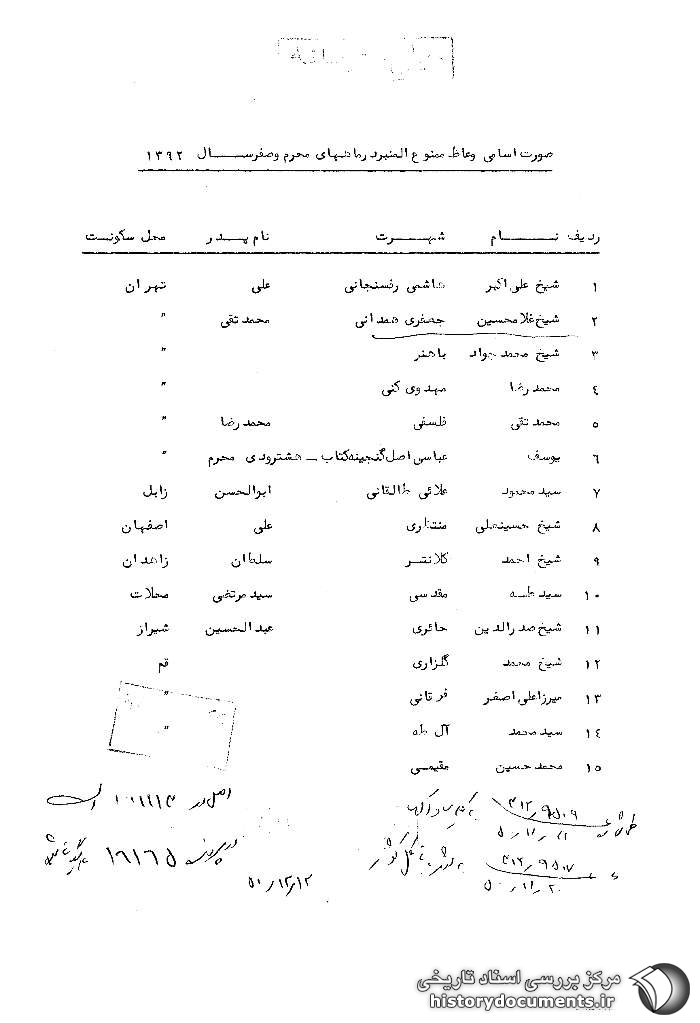 صورت اسامی وعاظ ممنوع المنبردرماههای محرم وصفرسال ۱۳۹۲
ردیف نام شهرت نام پدر محل سکونت
۱ شیخ علی اکبر هاشمی رفسنجانی علی تهران
۲ شیخ غلامحسین جعفری همدانی محمد تقی "
۳ شیخ محمد جواد باهنر "
٤ محمد رضا مهدوی کنی "
۵ محمد تقی فلسفی محمد رضا "
۶ یوسف عباسی اصل گنجینه کتاب - هشترودی محرم "
۷ سید محمود علائی طالقانی ابوالحسن زابل
۸ شیخ حسینعلی منتظری علی اصفهان
۹ شیخ احمد کلانتر سلطان زاهدان
۱۰ سید طه مقدسی سید مرتضی محلات
۱۱ شیخ صدرالدین حائری عبدالحسین شیراز
۱۲ شیخ محمد گلزاری قم
۱۳ میرزاعلی اصغر فرتانی "
۱٤ سید محمد آل طه "
۱۵ محمد حسین مقیمی
۳۱۲/۹۵۰۹ اصل در ۱۰۱۹۱۳ است
۵۰/۱۱/۲۱
۳۱۲/۹۵۰۷ در پرونده ۱۶۱۶۵
۵۰/۱۱/۲۰ ۵۰/۱۲/۱۲
مرکز بررسی اسناد تاریخی
historydocuments.ir